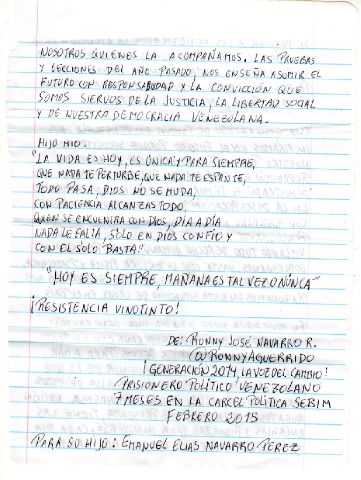 NOSOTROS QUIENES LA ACOMPAÑAMOS. LAS PRUEBAS
Y LECCIONES DEL AÑO PASADO, NOS ENSEÑA ASUMIR EL
FUTURO CON RESPONSABILIDAD Y LA CONVICCIÓN QUE
SOMOS SIERVOS DE LA JUSTICIA, LA LIBERTAD SOCIAL
Y DE NUESTRA DEMOCRACIA VENEZOLANA.
HIJO MIO:
"LA VIDA ES HOY, ES ÚNICA Y PARA SIEMPRE,
QUE NADA TE PERTURBE, QUE NADA TE ESPANTE,
TODO PASA, DIOS NO SE MUDA,
CON PACIENCIA ALCANZAS TODO,
QUIEN SE ENCUENTRA CON DIOS, DÍA A DÍA
NADA LE FALTA, SÓLO EN DIOS CONFÍO Y
CON EL SOLO BASTA."
"HOY ES SIEMPRE, MAÑANA ES TAL VEZ O NUNCA"
¡RESISTENCIA VINOTINTO!
DE: RONNY JOSÉ NAVARRO R.
@RONNYAGUERRIDO
¡GENERACIÓN 2014, LA VOZ DEL CAMBIO!
PRISIONERO POLÍTICO VENEZOLANO
7 MESES EN LA CARCEL POLÍTICA SEBIM
FEBRERO 2015
PARA SU HIJO: EMANUEL ELIAS NAVARRO PEREZ